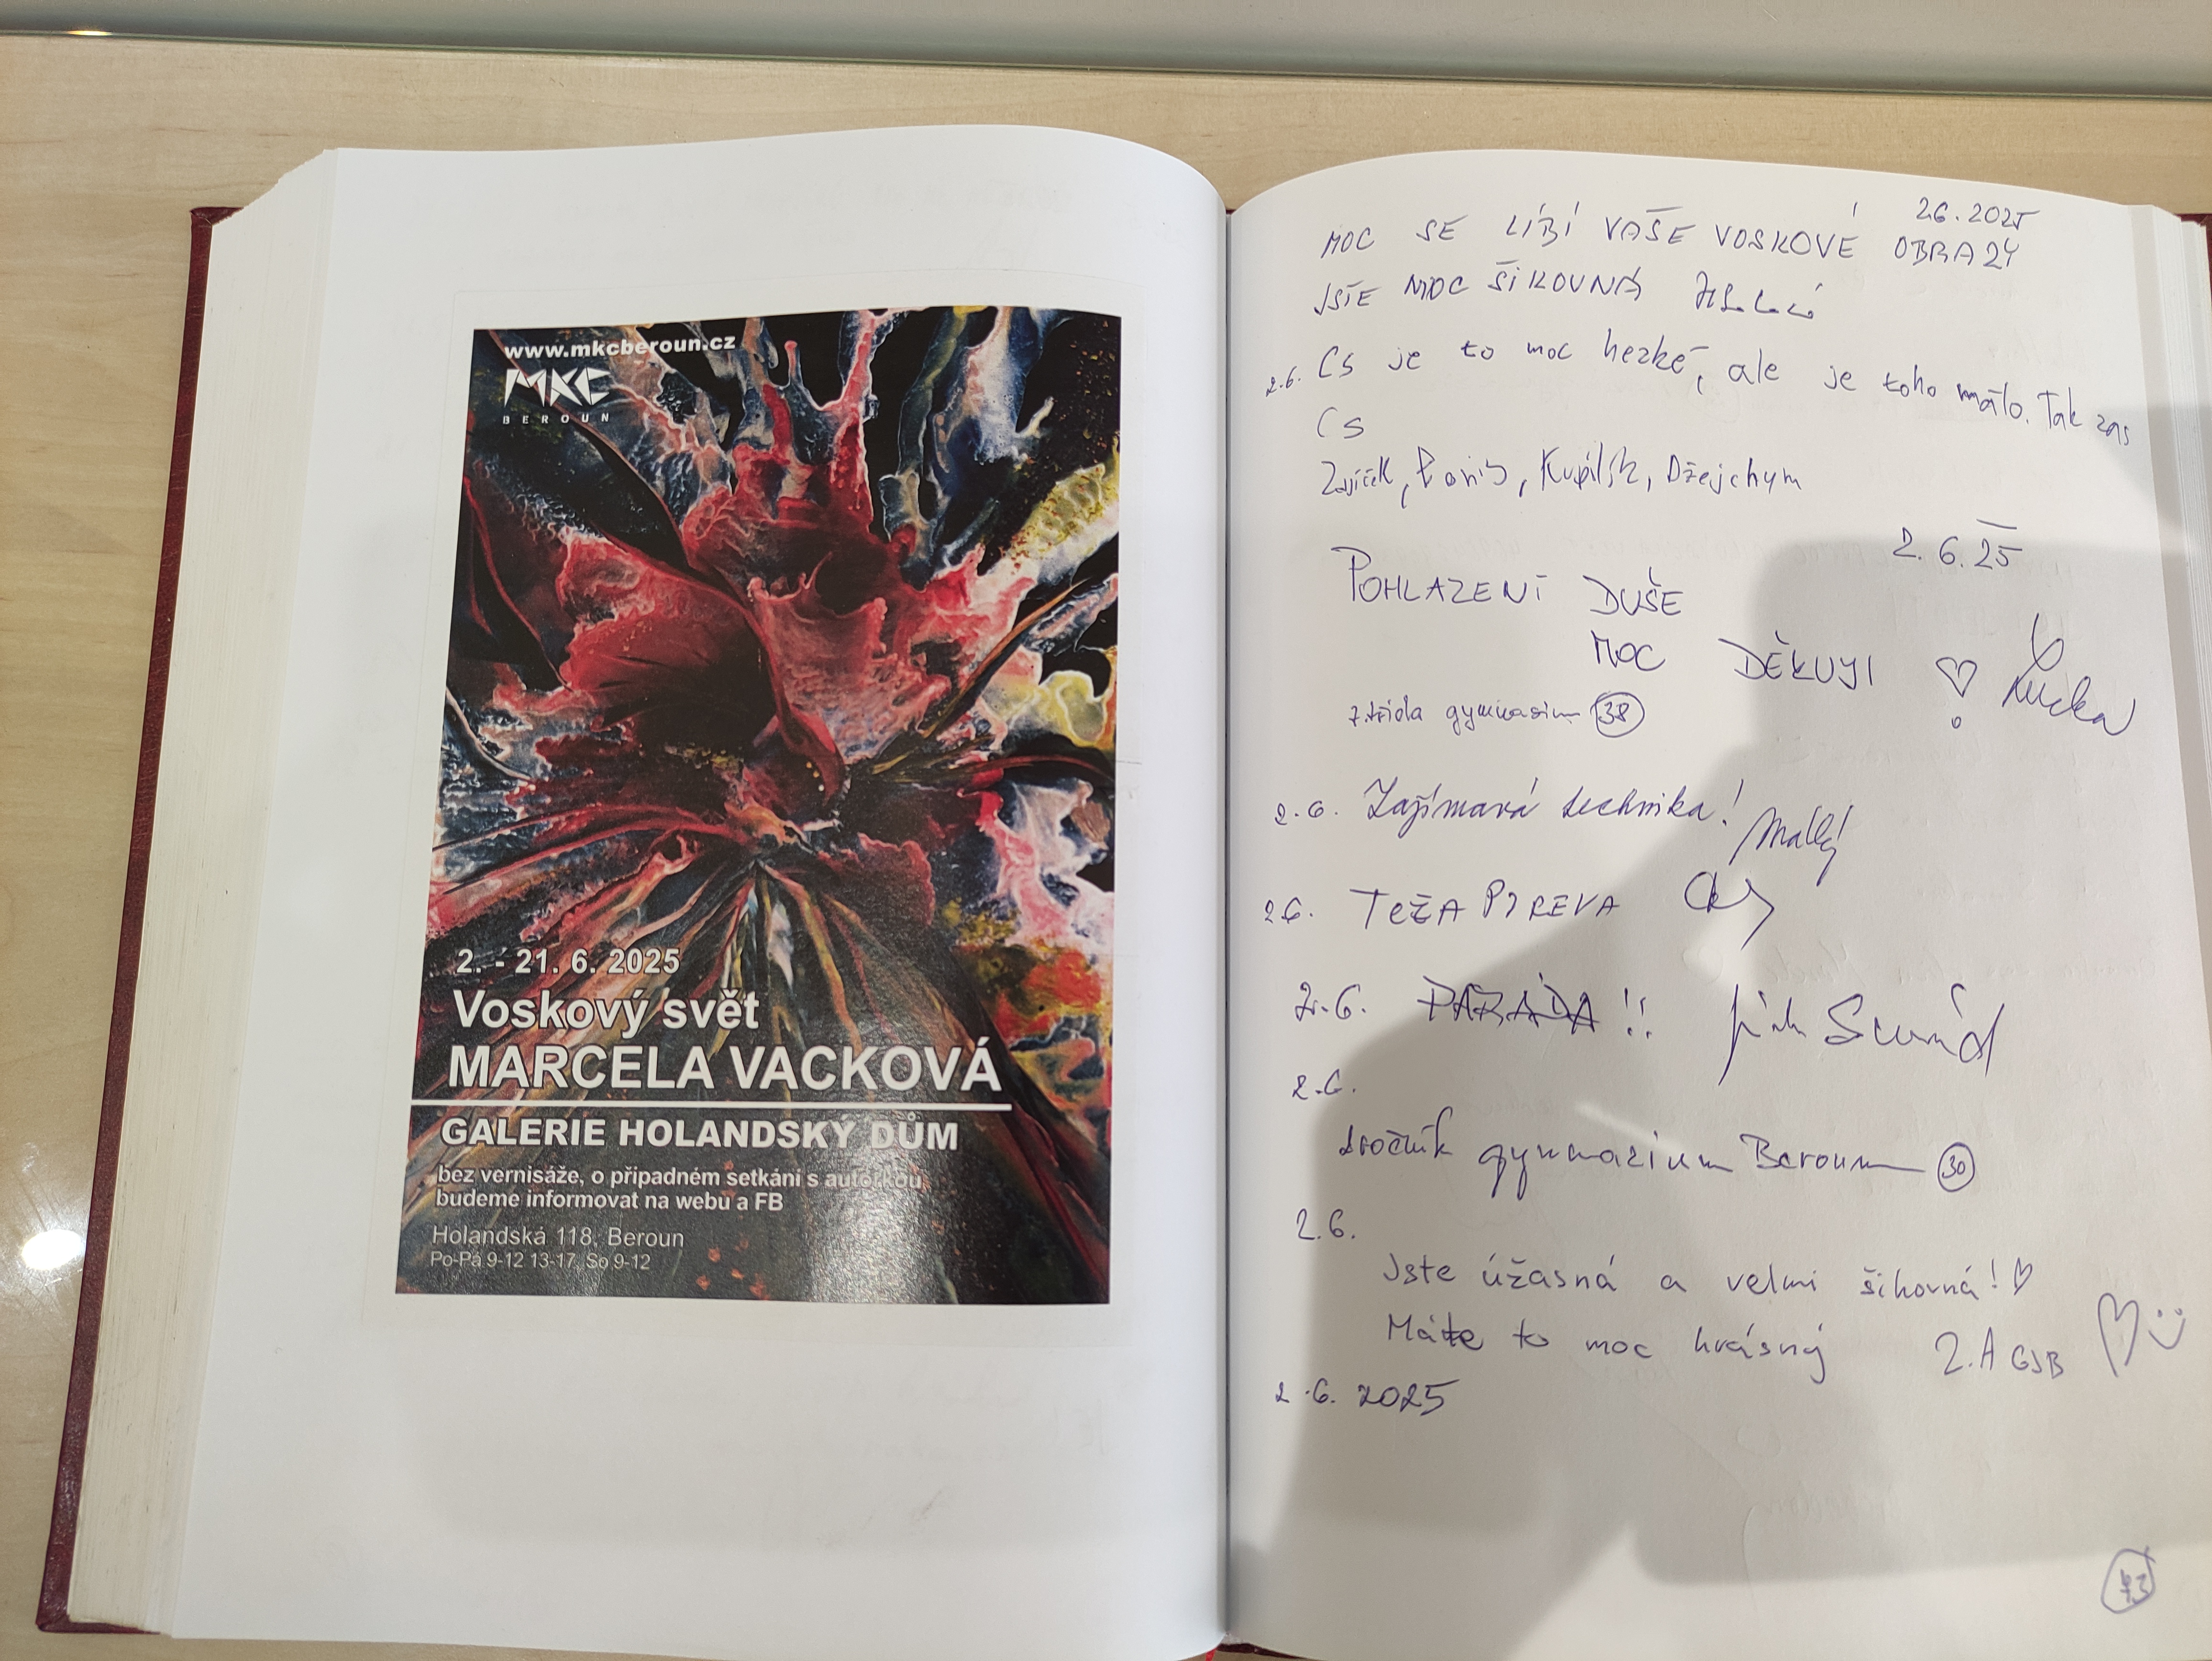 www.mkcberoun.cz
MKC
BEROUN
2. - 21. 6. 2025
Voskový svět
MARCELA VACKOVÁ
GALERIE HOLANDSKÝ DŮM
bez vernisáže, o případném setkání s autorkou
budeme informovat na webu a FB
Holandská 118, Beroun
Po-Pá 9-12 13-17, So 9-12
2.6.2025
MOC SE LÍBÍ VAŠE VOSKOVÉ OBRAZY
JSTE MOC ŠIKOVNÁ
2.6. Cs je to moc hezké, ale je toho málo. Tak zas
Cs
Zajíček, Kupilík, Džejchym
2.6.25
POHLAZENÍ DUŠE
MOC DĚKUJI
7. třída gymnasium 38
2.6. Zajímavá technika! Mallý
2.6.
2.6. PARÁDA !!
2.6.
ročník gymnazium Beroun 30
2.6.
Jste úžasná a velmi šikovná! ♡
Máte to moc krásný 2.A GJB
2.6. 2025
43